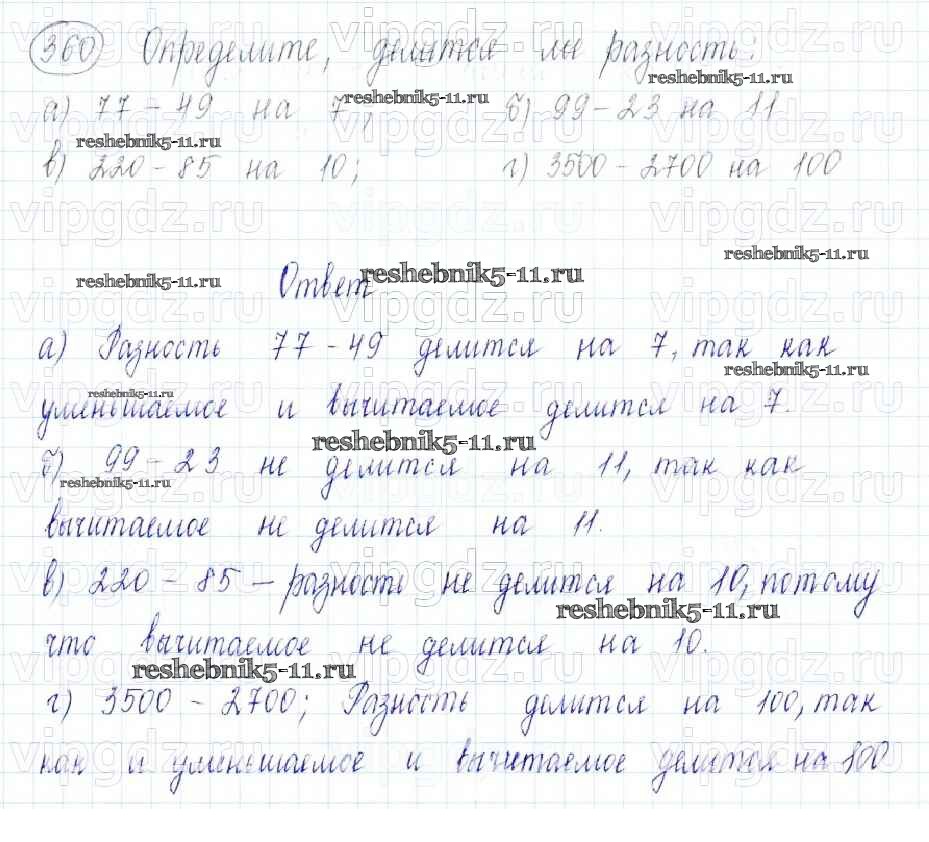 360 Определите, делится ли разность:
а) 77 - 49 на 7, б) 99 - 23 на 11
в) 220 - 85 на 10; г) 3500 - 2700 на 100
Ответ
а) Разность 77 - 49 делится на 7, так как
уменьшаемое и вычитаемое делится на 7.
б) 99 - 23 не делится на 11, так как
вычитаемое не делится на 11.
в) 220 - 85 – разность не делится на 10, потому
что вычитаемое не делится на 10.
г) 3500 - 2700; Разность делится на 100, так
как и уменьшаемое и вычитаемое делится на 100
reshebnik5-11.ru
vipgdz.ru